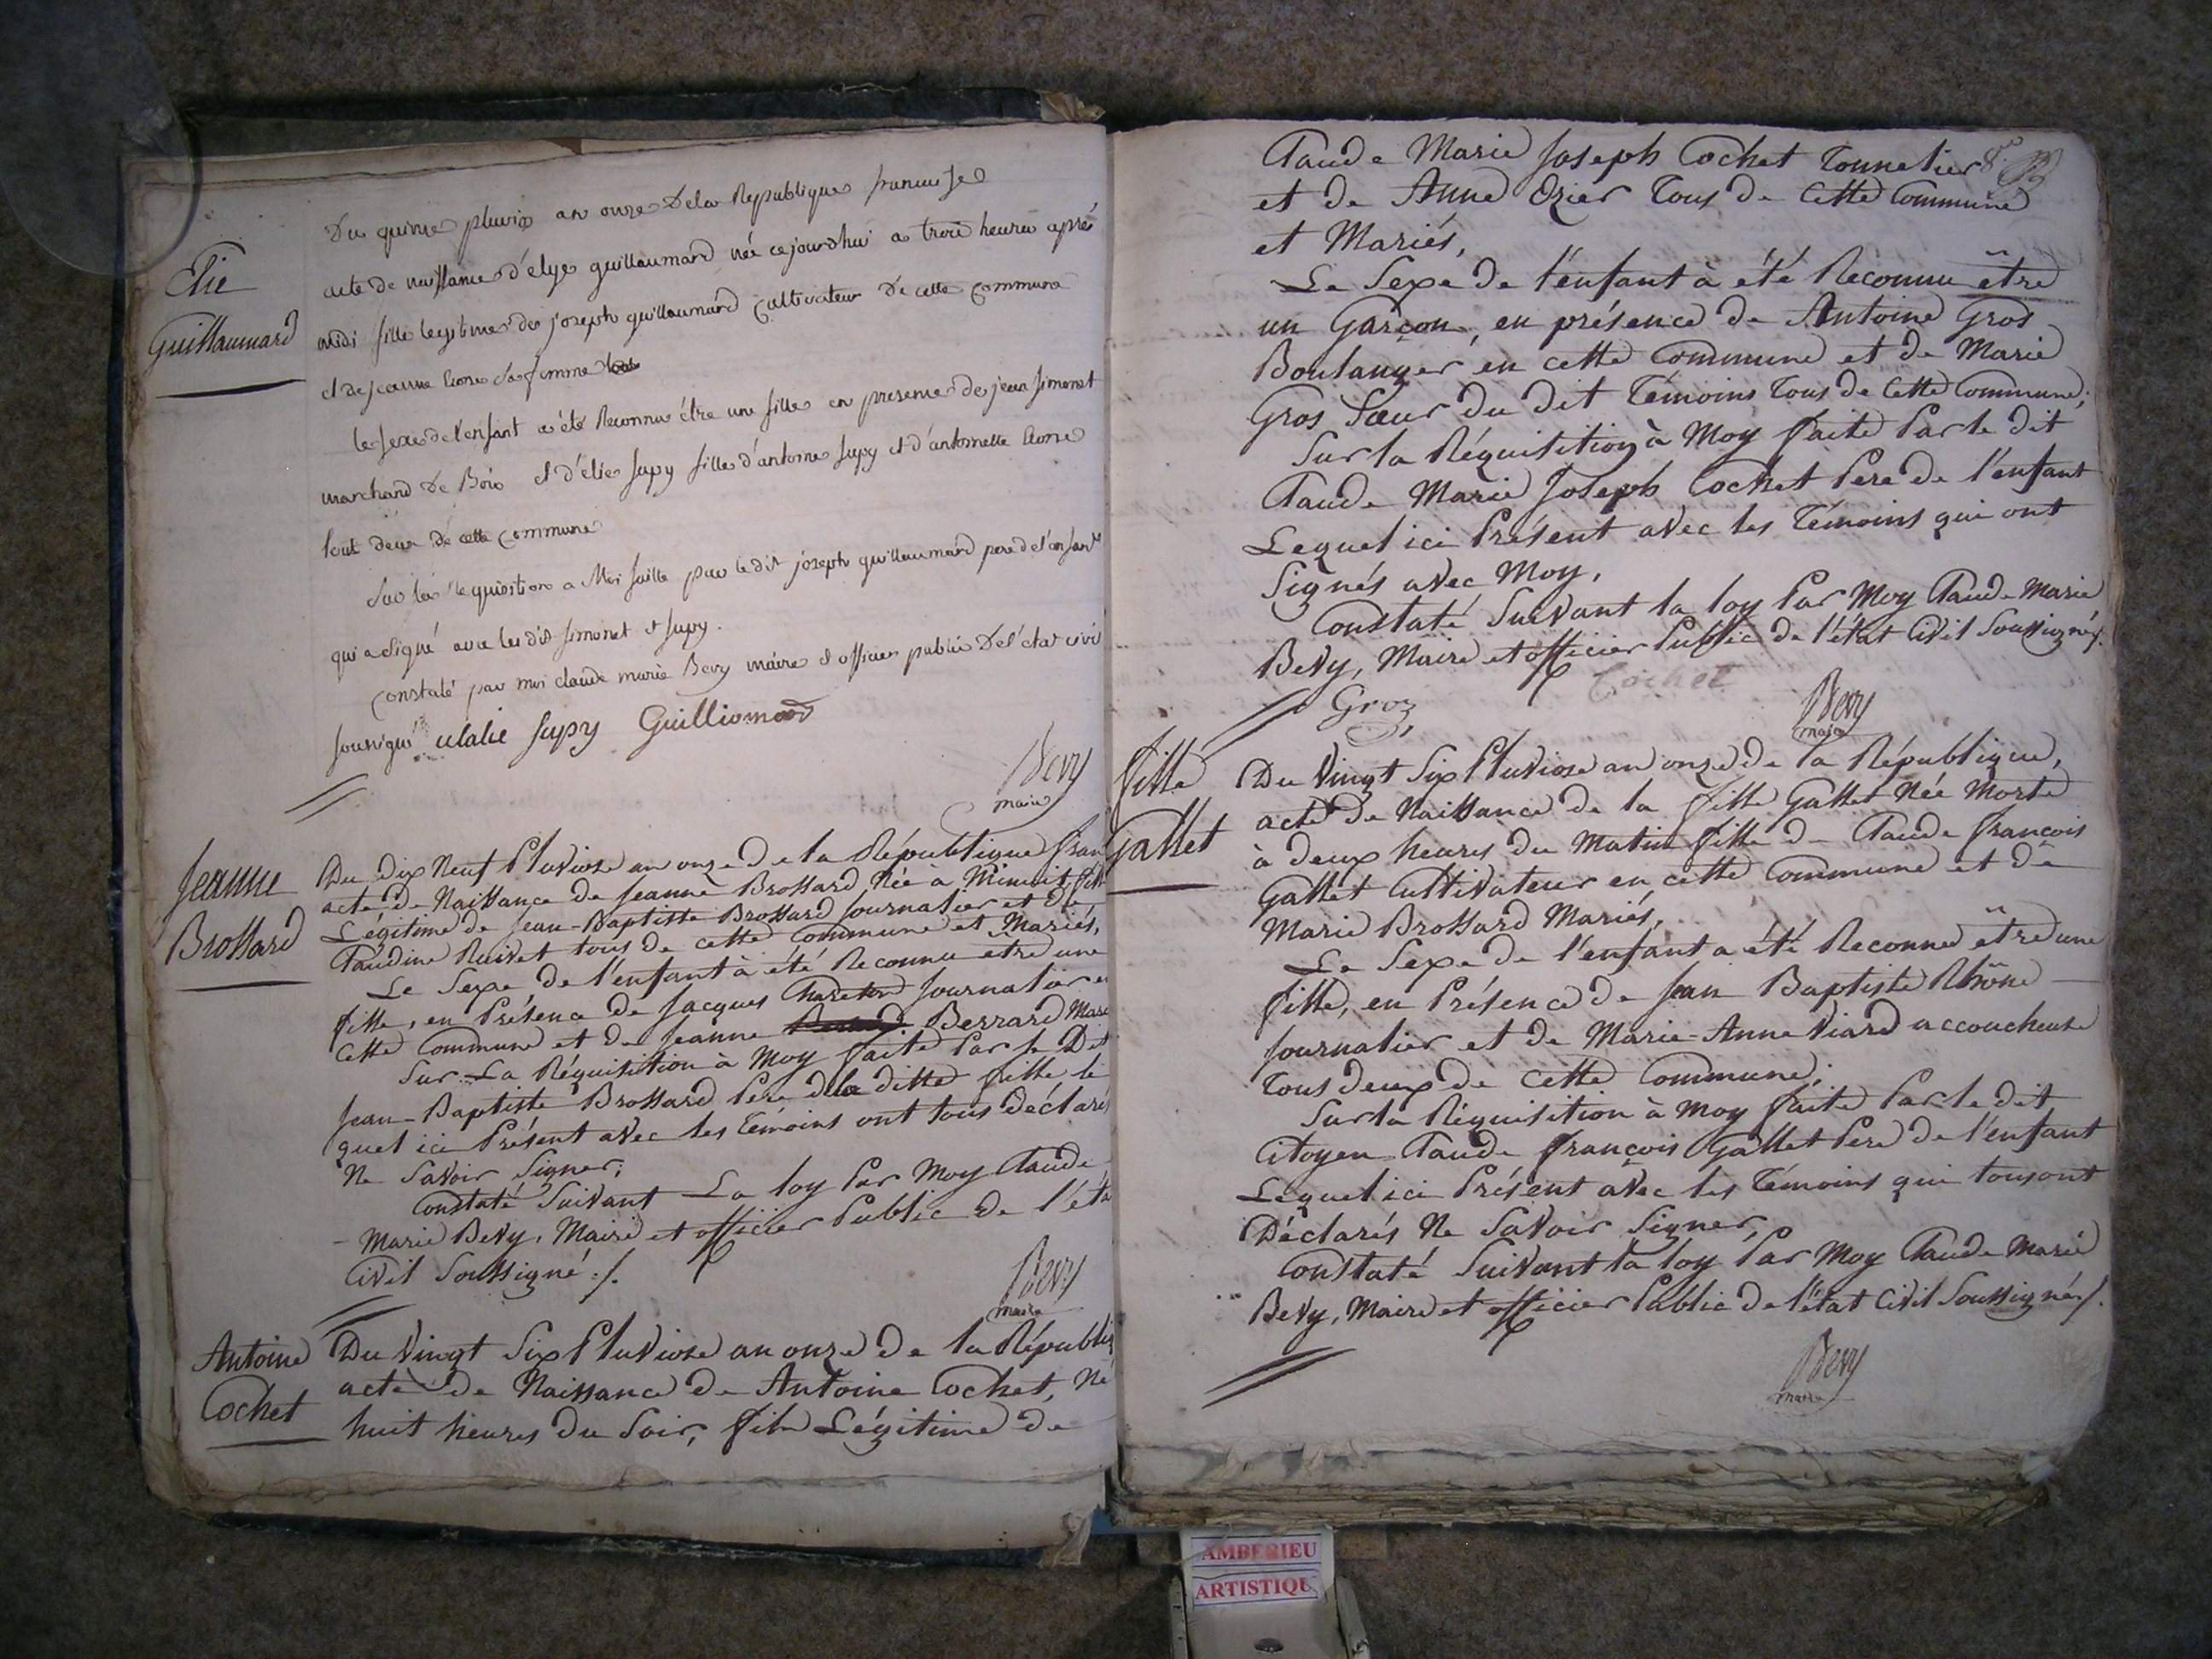 Elie
Guillaumard
Du quinze pluviose an onze De la Republique francaise
acte de naissance d'elye guillaumard née cejourdhui a trois heures aprés
midi fille legitime de joseph guillaumard cultivateur De cette commune
et de jeanne sa femme
le sexe de l'enfant a été Reconnu étre une fille en presence de jean simonet
marchand De Bois et d'élie supy fille d'antoine supy et d'antoinette
tout deux de cette commune
Sur la requisition a Moi faitte par le dit joseph guillaumard pere de l'enfant
qui a signé avec les dit simonet et supy.
constaté par moi claude marie Bevy maire et officier public De l'état civil
soussigné ulalie supy Guilliomard
Bevy
maire
Jeanne
Brossard
Du dix Neuf Pluviose an onze de la République fran
acte de Naissance de Jeanne Brossard Née a Minuit fille
Légitime de Jean-Baptiste Brossard Journalier et de
Claudine Ruivet tous de cette Commune et Mariés,
Le Sexe de l'enfant à été Reconnu etre une
fille, en Présence de Jacques Chareton Journalier en
Cette Commune et de Jeanne Berrard
Sur La Réquisition à Moy faite Par le Dit
Jean-Baptiste Brossard Pere de la ditte fille le
quel ici Présent avec les Témoins ont tous Déclarés
Ne Savoir Signer;
Constaté Suivant La loy Par Moy Claude
Marie Bevy, Maire et officier Public de l'éta
Civil Soussigné ./.
Bevy
maire
Antoine
Cochet
Du Vingt Six Pluviose an onze de la Républi
acte de Naissance de Antoine Cochet, Né
huit heures du Soir, fils Légitime de
8.
Claude Marie Joseph Cochet Tonnelier
et de Anne Ozier Tous de Cette Commune
et Mariés,
Le Sexe de l'enfant à été Reconnu être
un Garçon, en présence de Antoine Gros
Boulanger en cette Commune et de Marie
Gros Sœur du dit Témoins Tous de Cette Commune;
Sur la Réquisition à Moy faite Par le dit
Claude Marie Joseph Cochet Pere de l'enfant
Lequel ici Présent avec les Témoins qui ont
Signés avec Moy,
Constaté Suivant la loy Par Moy Claude Marie
Bevy, Maire et officier Public de l'état Civil Soussigné ./.
Groz Cochet
Bevy
maire
fille
Gallet
Du Vingt Six Pluviose an onze de la République,
acte de Naissance de la fille Gallet Née Morte
à deux heures du Matin fille de Claude françois
Gallet Cultivateur en cette Commune et de
Marie Brossard Mariés,
Le Sexe de l'enfant a été Reconnu être une
fille, en Présence de Jean Baptiste Rhône
Journalier et de Marie-Anne Viard accoucheuse
Tous deux de Cette Commune;
Sur la Réquisition à Moy faite Par le dit
Citoyen Claude françois Gallet Pere de l'enfant
Lequel ici Présent avec les Témoins qui tous ont
Déclarés Ne Savoir Signer,
Constaté Suivant la loy Par Moy Claude Marie
Bevy, Maire et officier Public de l'état Civil Soussigné ./.
Bevy
maire
AMBERIEU
ARTISTIQUE